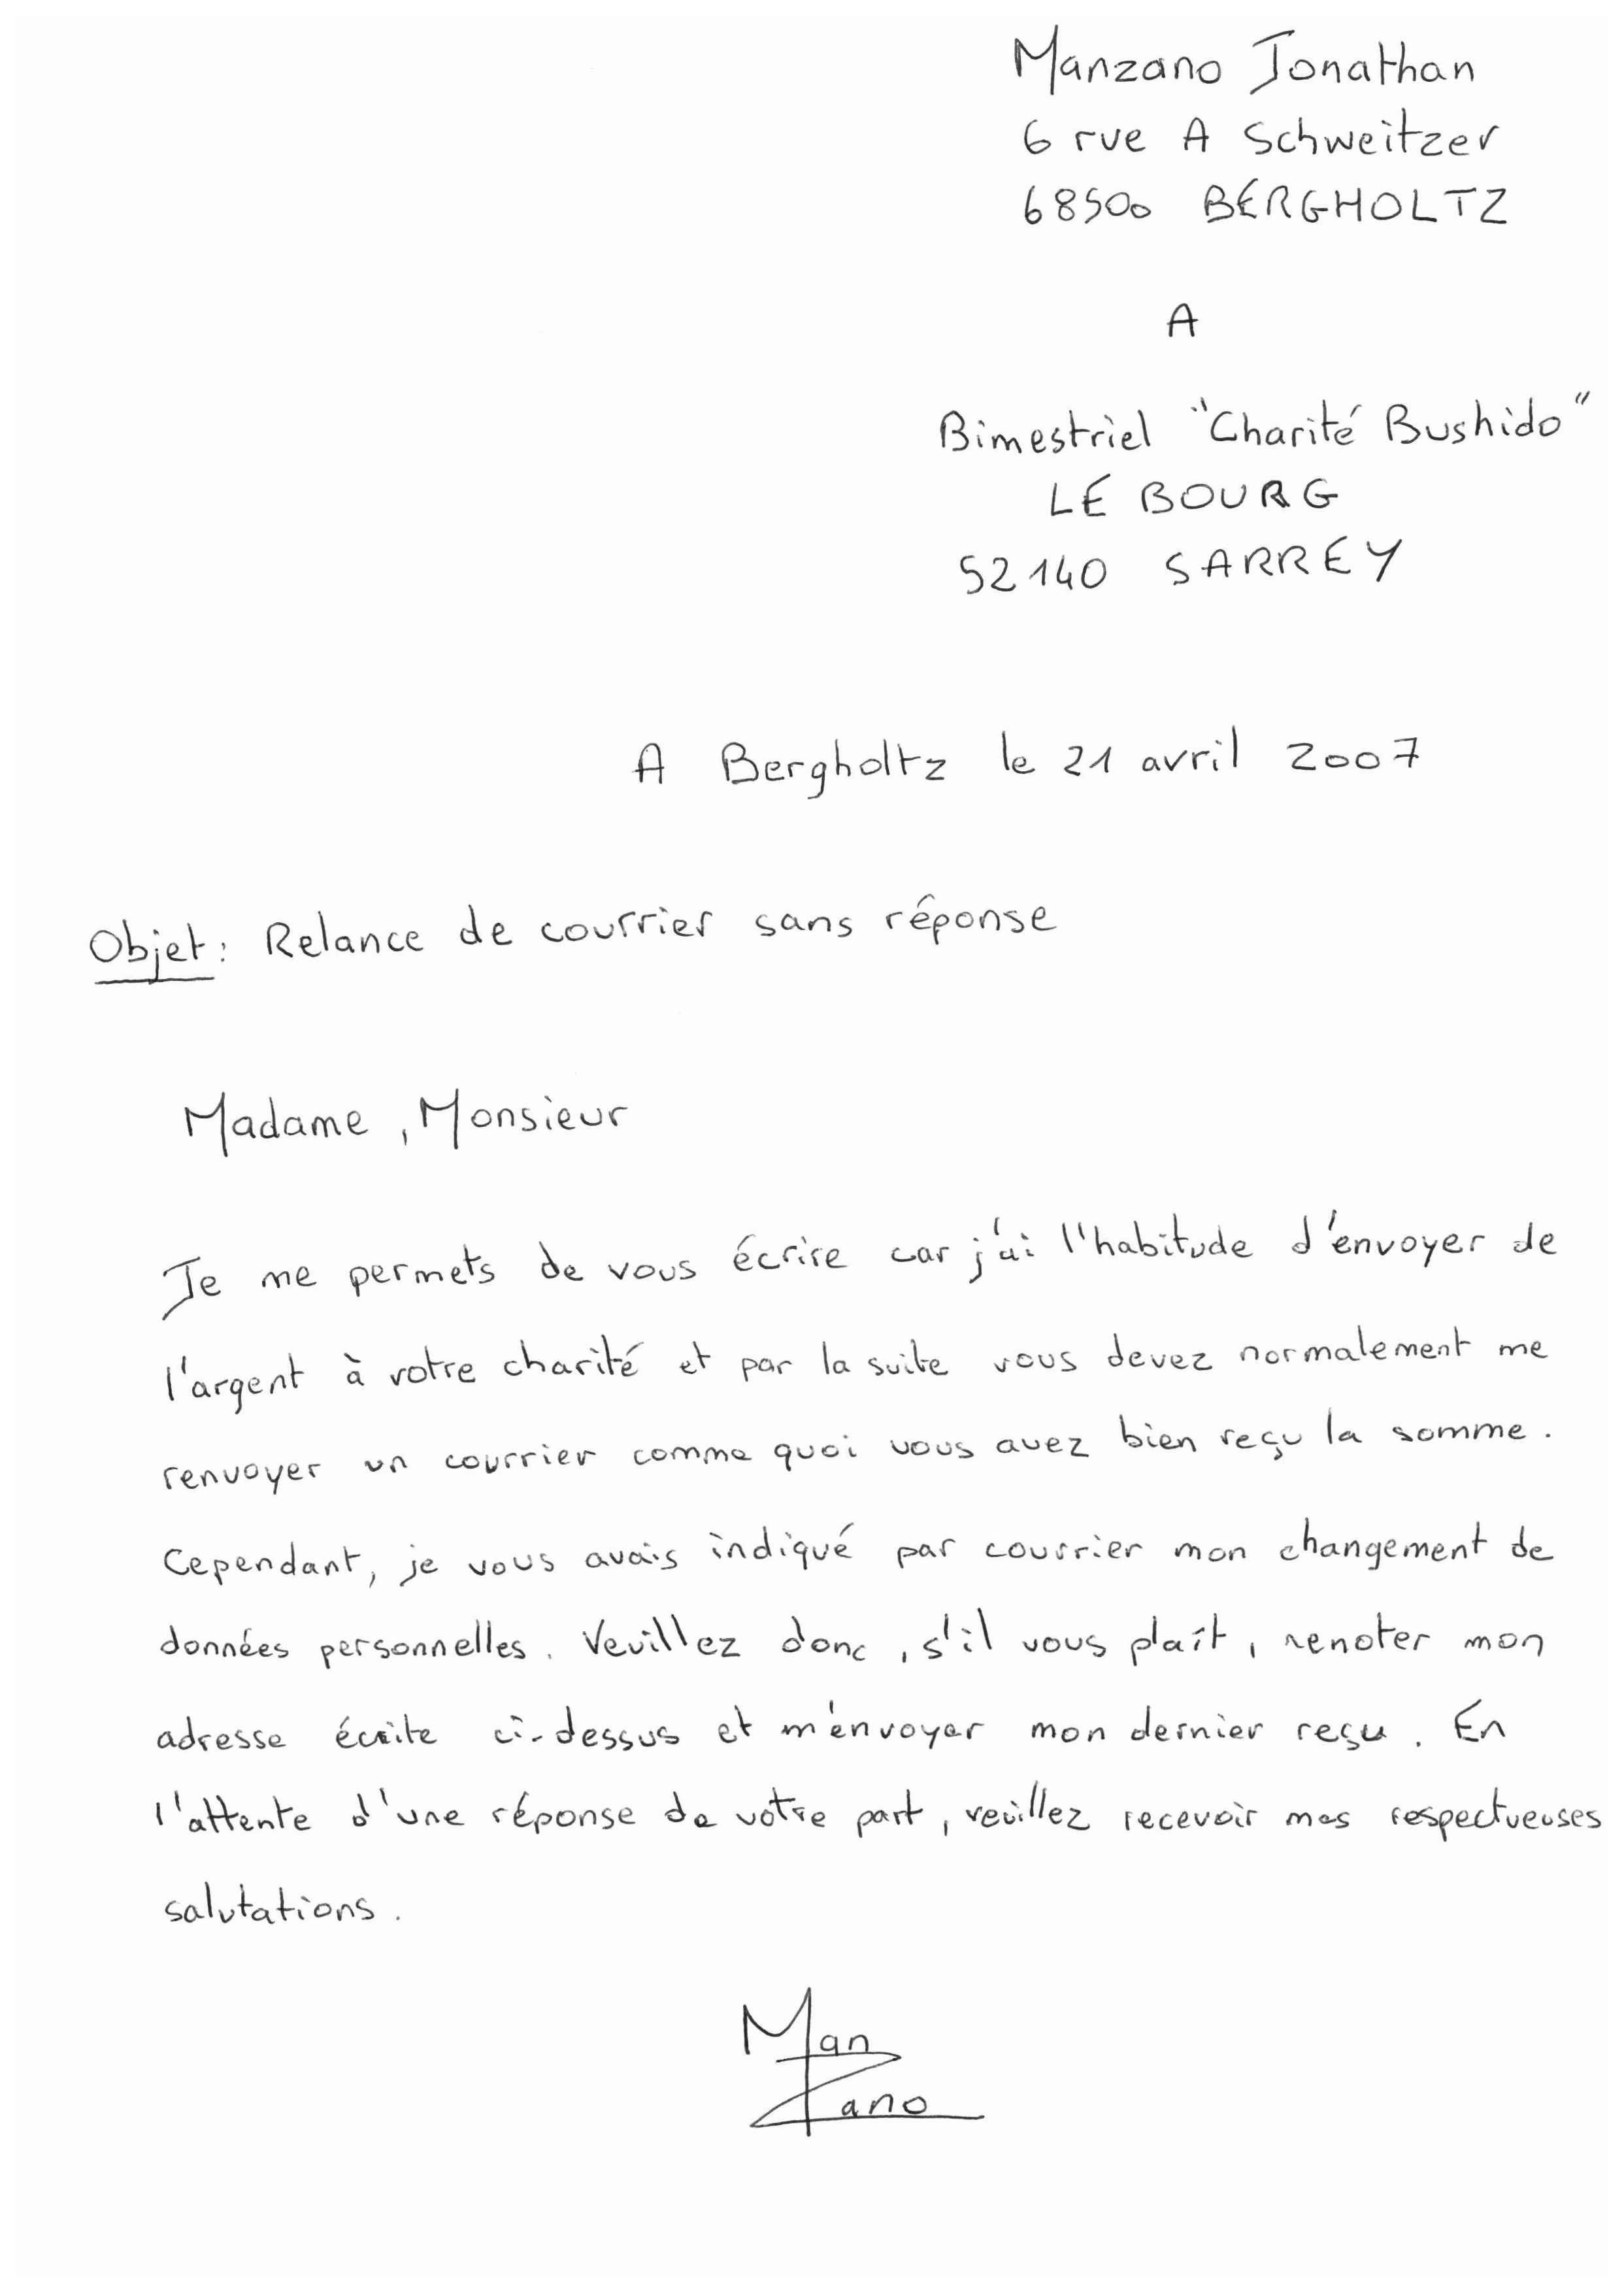 Manzano Jonathan
6 rue A Schweitzer
68500 BERGHOLTZ
A
Bimestriel "Charité Bushido"
LE BOURG
52140 SARREY
A Bergholtz le 21 avril 2007
Objet : Relance de courrier sans réponse
Madame, Monsieur
Je me permets de vous écrire car j'ai l'habitude d'envoyer de
l'argent à votre charité et par la suite vous devez normalement me
renvoyer un courrier comme quoi vous avez bien reçu la somme.
Cependant, je vous avais indiqué par courrier mon changement de
données personnelles. Veuillez donc, s'il vous plaît, renoter mon
adresse écrite ci-dessus et m'envoyer mon dernier reçu. En
l'attente d'une réponse de votre part, veuillez recevoir mes respectueuses
salutations.
Man
Zano